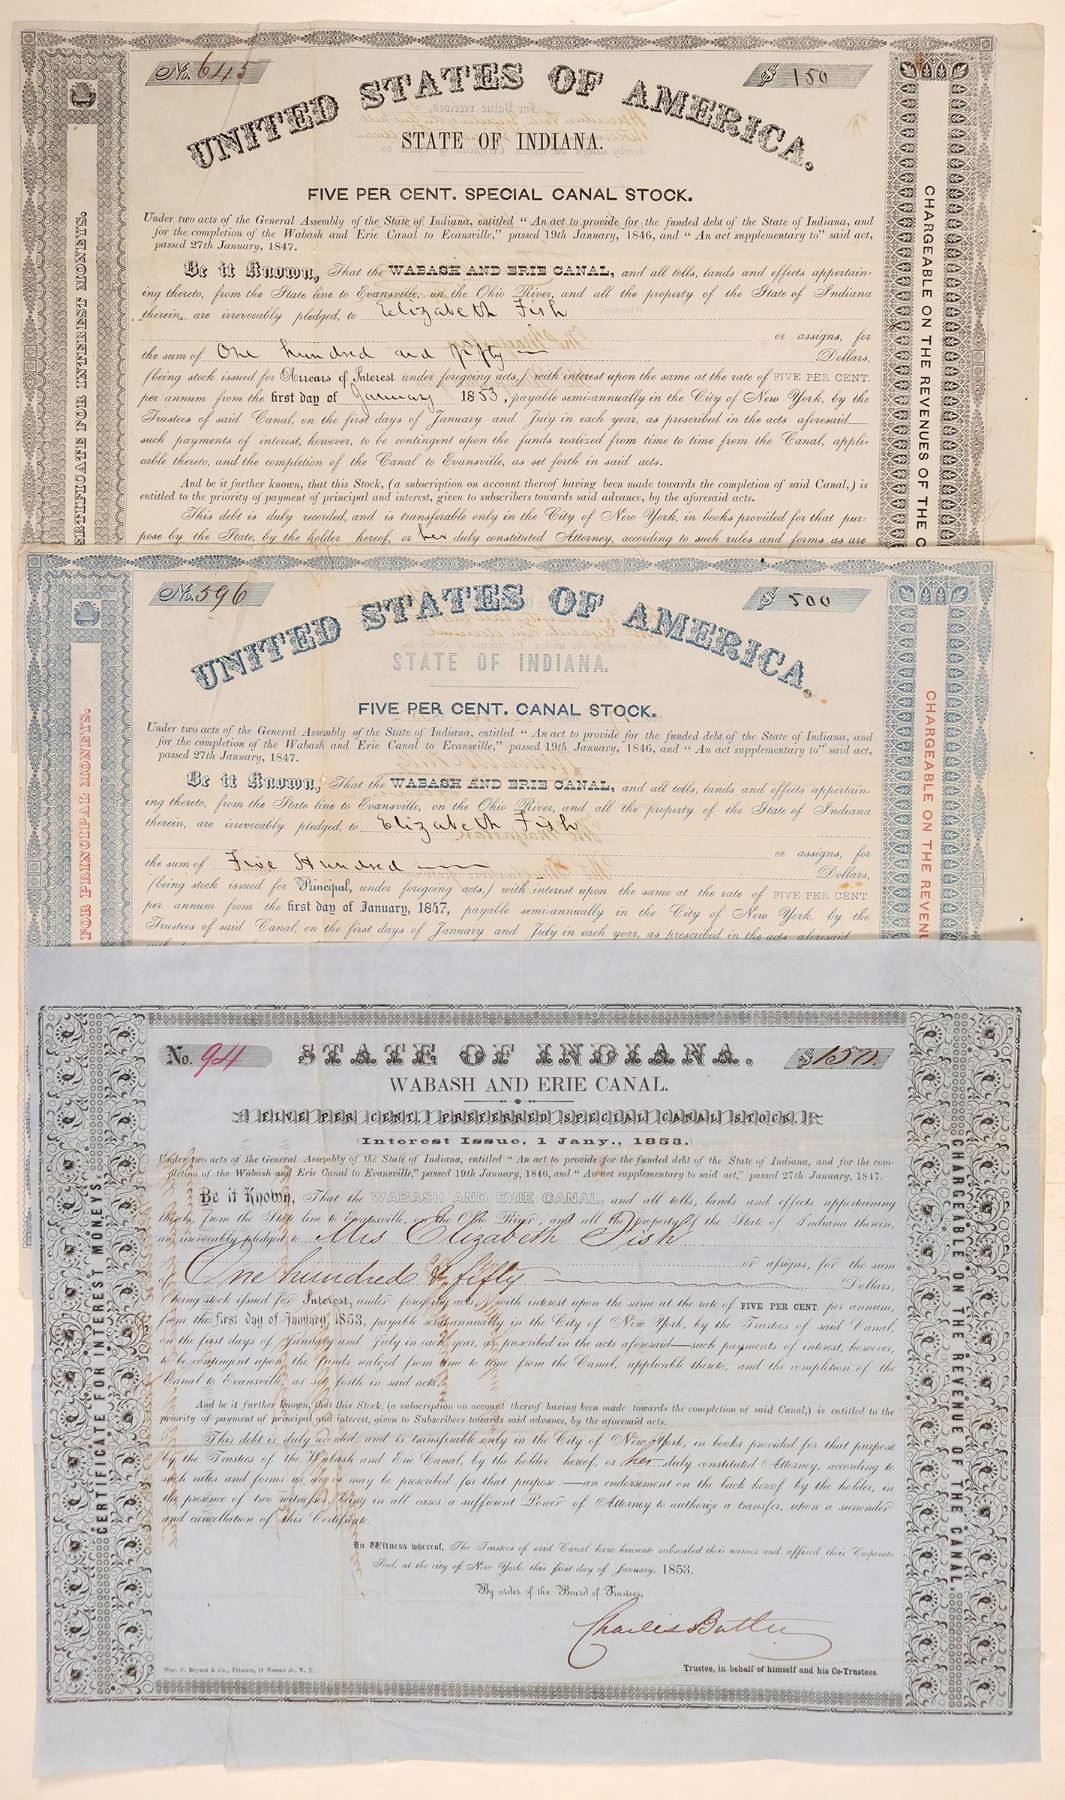 No. 645
$ 150
UNITED STATES OF AMERICA.
STATE OF INDIANA.
FIVE PER CENT. SPECIAL CANAL STOCK.
Under two acts of the General Assembly of the State of Indiana, entitled “ An act to provide for the funded debt of the State of Indiana, and
for the completion of the Wabash and Erie Canal to Evansville,” passed 19th January, 1846, and “ An act supplementary to” said act,
passed 27th January, 1847.
Be it Known, That the WABASH AND ERIE CANAL, and all tolls, lands and effects appertain-
ing thereto, from the State line to Evansville, on the Ohio River, and all the property of the State of Indiana
therein, are irrevocably pledged, to Elizabeth Fish
or assigns, for
the sum of One hundred and fifty Dollars,
(being stock issued for Arrears of Interest under foregoing acts,) with interest upon the same at the rate of FIVE PER CENT.
per annum from the first day of January 1853, payable semi-annually in the City of New York, by the
Trustees of said Canal, on the first days of January and July in each year, as prescribed in the acts aforesaid
such payments of interest, however, to be contingent upon the funds realized from time to time from the Canal, appli-
cable thereto, and the completion of the Canal to Evansville, as set forth in said acts.
And be it further known, that this Stock, (a subscription on account thereof having been made towards the completion of said Canal,) is
entitled to the priority of payment of principal and interest, given to subscribers towards said advance, by the aforesaid acts.
This debt is duly recorded, and is transferable only in the City of New York, in books provided for that pur-
pose by the State, by the holder hereof, or her duly constituted Attorney, according to such rules and forms as are
CERTIFICATE FOR INTEREST MONEYS.
CHARGEABLE ON THE REVENUES OF THE C
No. 596
$ 500
UNITED STATES OF AMERICA.
STATE OF INDIANA.
FIVE PER CENT. CANAL STOCK.
Under two acts of the General Assembly of the State of Indiana, entitled “ An act to provide for the funded debt of the State of Indiana, and
for the completion of the Wabash and Erie Canal to Evansville,” passed 19th January, 1846, and “ An act supplementary to” said act,
passed 27th January, 1847.
Be it Known, That the WABASH AND ERIE CANAL, and all tolls, lands and effects appertain-
ing thereto, from the State line to Evansville, on the Ohio River, and all the property of the State of Indiana
therein, are irrevocably pledged, to Elizabeth Fish
or assigns, for
the sum of Five Hundred Dollars,
(being stock issued for Principal, under foregoing acts,) with interest upon the same at the rate of FIVE PER CENT
per annum from the first day of January, 1847, payable semi-annually in the City of New York, by the
Trustees of said Canal, on the first days of January and July in each year, as prescribed in the acts aforesaid
FOR PRINCIPAL MONEYS.
CHARGEABLE ON THE REVENU
No. 94
STATE OF INDIANA.
$150.
WABASH AND ERIE CANAL.
FIVE PER CENT. PREFERRED SPECIAL CANAL STOCK.
(Interest Issue, 1 Jany., 1853.
Under two acts of the General Assembly of the State of Indiana, entitled “ An act to provide for the funded debt of the State of Indiana, and for the com-
pletion of the Wabash and Erie Canal to Evansville,” passed 19th January, 1846, and “An act supplementary to said act,” passed 27th January, 1847.
Be it Known, That the WABASH AND ERIE CANAL, and all tolls, lands and effects appertaining
thereto, from the State line to Evansville, on the Ohio River, and all the property of the State of Indiana therein,
are irrevocably pledged to Mrs Elizabeth Fish
or assigns, for the sum
One hundred & fifty Dollars,
(being stock issued for Interest, under foregoing acts,) with interest upon the same at the rate of FIVE PER CENT. per annum,
from the first day of January, 1853, payable semi-annually in the City of New York, by the Trustees of said Canal,
on the first days of January and July in each year, as prescribed in the acts aforesaid—such payments of interest, however,
to be contingent upon the funds realized from time to time from the Canal, applicable thereto, and the completion of the
Canal to Evansville, as set forth in said acts.
And be it further known, that this Stock, (a subscription on account thereof having been made towards the completion of said Canal,) is entitled to the
priority of payment of principal and interest, given to Subscribers towards said advance, by the aforesaid acts.
This debt is duly recorded, and is transferable only in the City of New York, in books provided for that purpose
by the Trustees of the Wabash and Erie Canal, by the holder hereof, or her duly constituted Attorney, according to
such rules and forms as are or may be prescribed for that purpose—an endorsement on the back hereof by the holder, in
the presence of two witnesses, being in all cases a sufficient Power of Attorney to authorize a transfer, upon a surrender
and cancellation of this Certificate.
In Witness whereof, The Trustees of said Canal have hereunto subscribed their names and affixed their Corporate
Seal, at the city of New York, this first day of January, 1853.
By order of the Board of Trustees,
Charles Butler
Trustee, in behalf of himself and his Co-Trustees.
Wm. C. Bryant & Co., Printers, 18 Nassau st., N. Y.
CERTIFICATE FOR INTEREST MONEYS.
CHARGEABLE ON THE REVENUE OF THE CANAL.